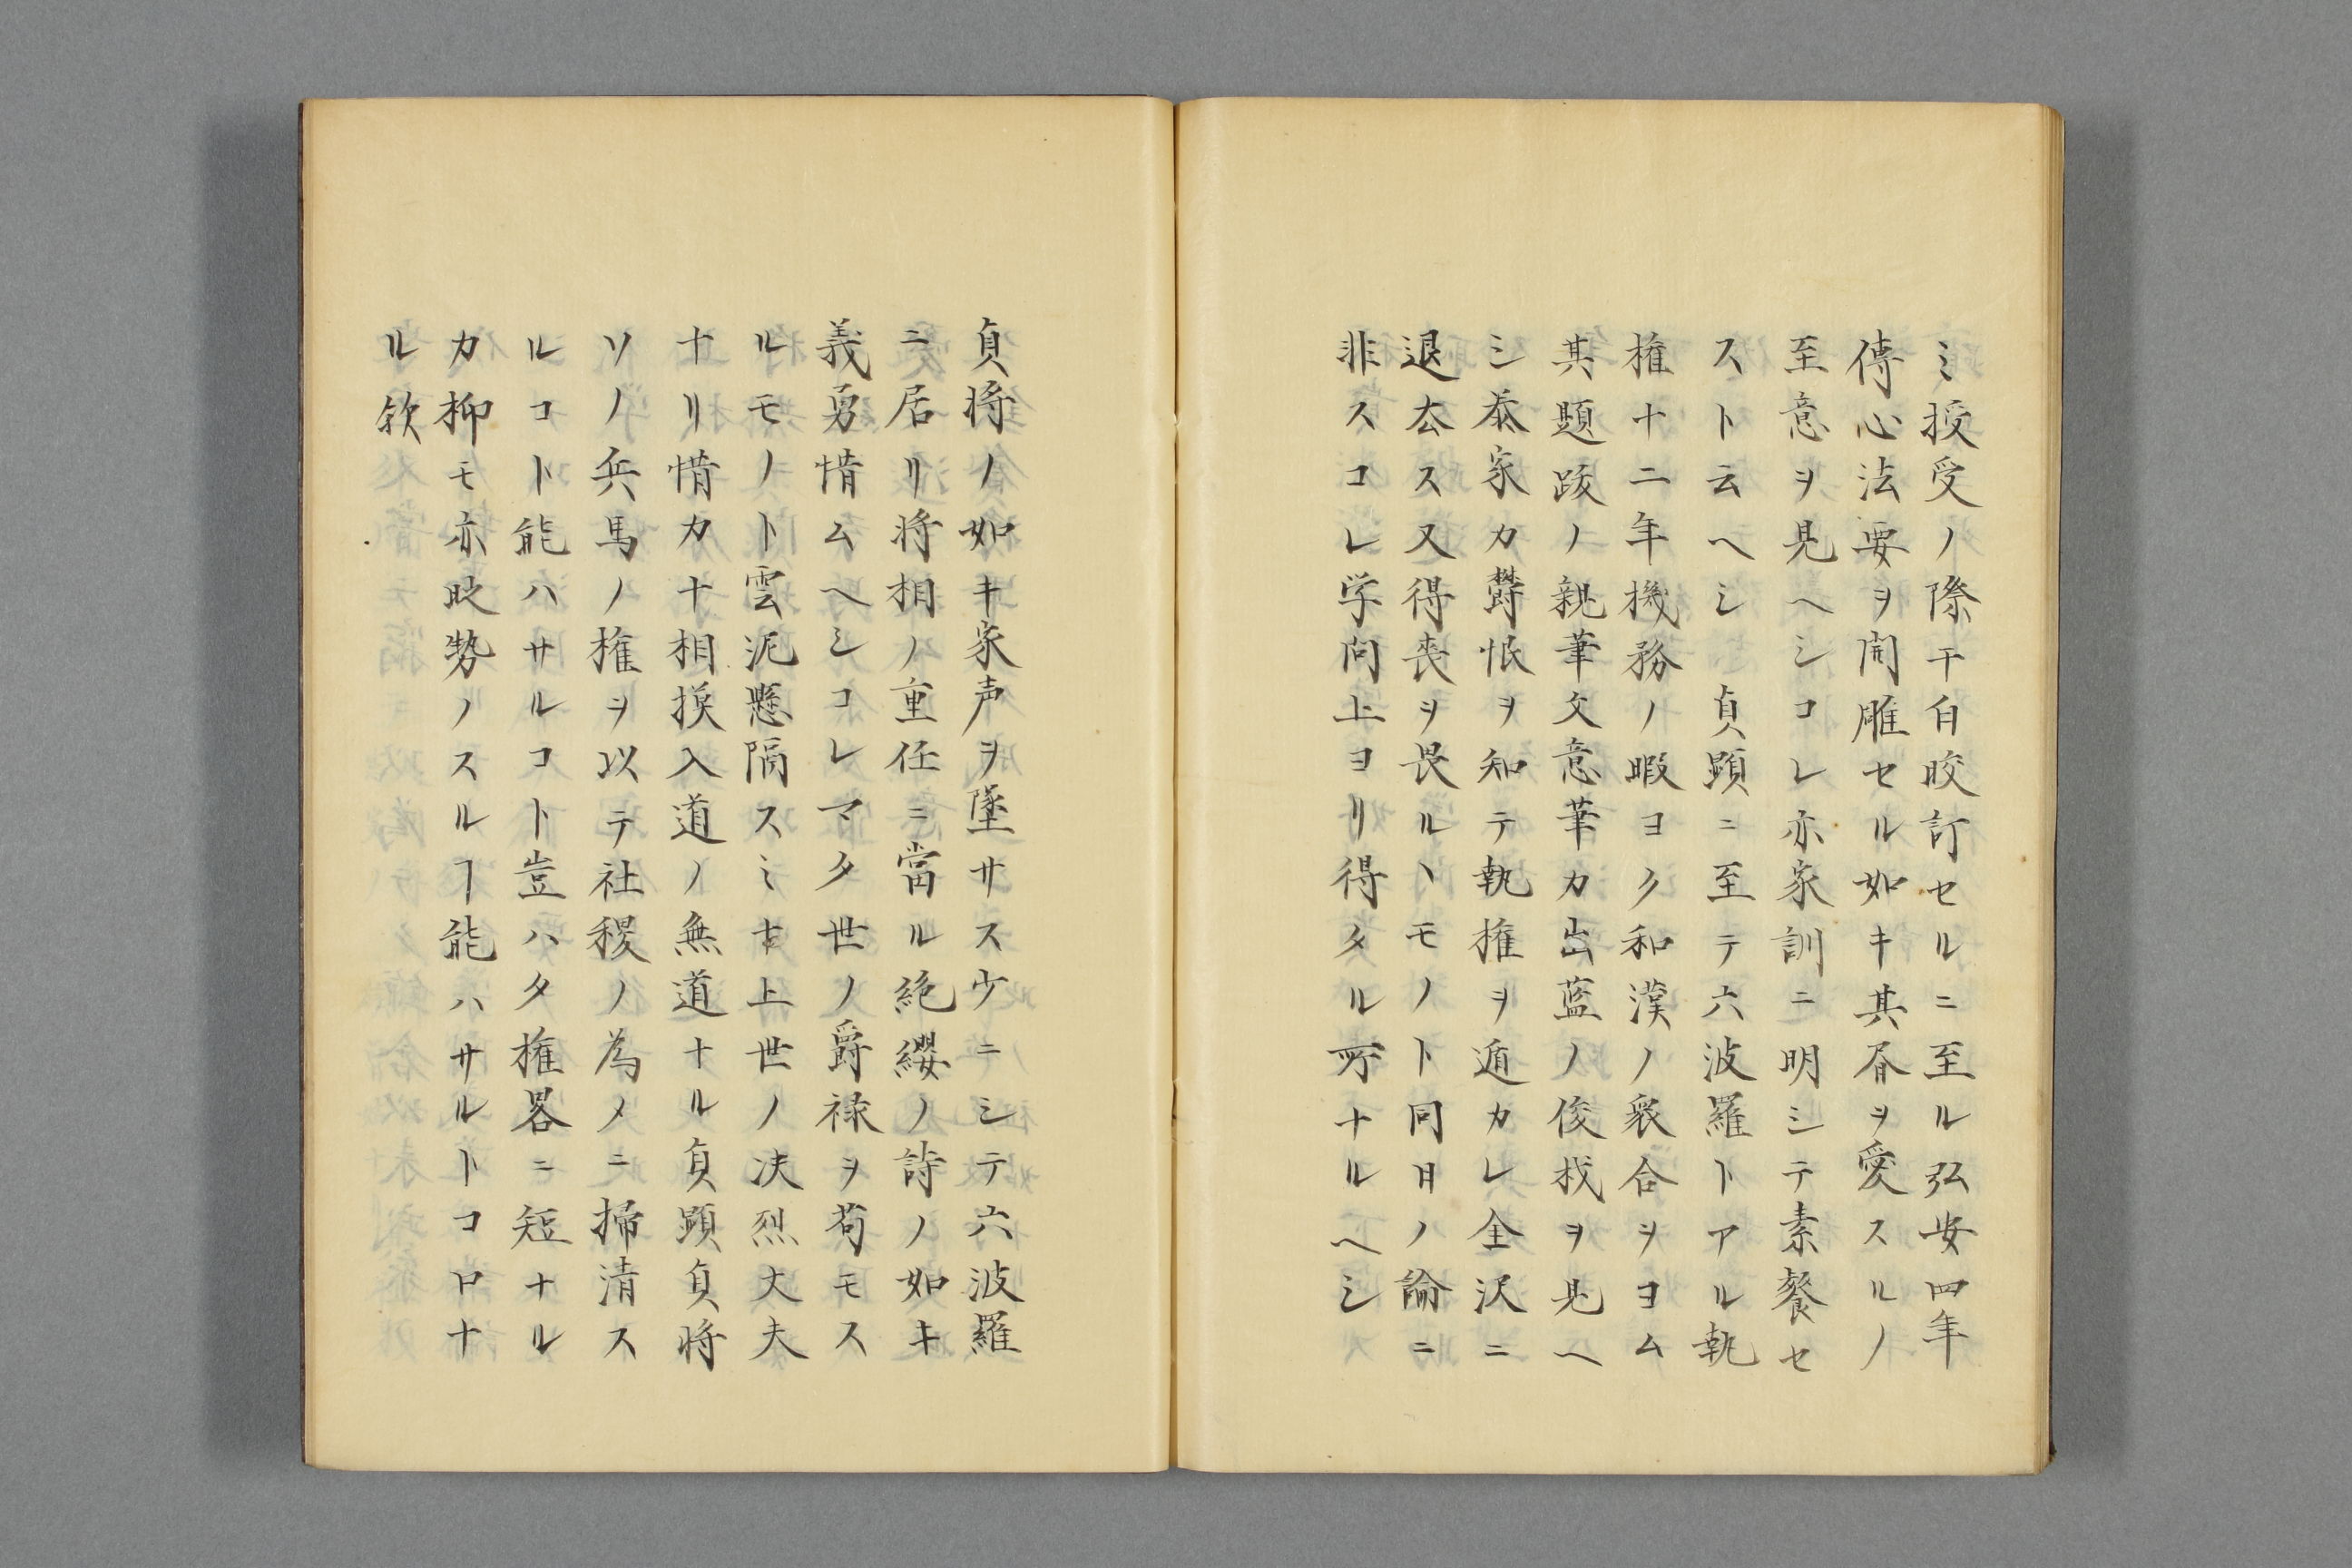 ミ授受ノ際干自校訂セルニ至ル弘安四年
傳心法要ヲ開雕セル如キ其眘ヲ愛スルノ
至意ヲ見ヘシコレ亦家訓ニ明シテ素餐セ
スト云ヘシ　貞顕ニ至テ六波羅トアル執
権十二年機務ノ暇ヨク和漢ノ衆合ヲヨム
其題跋ノ親筆文意華カ出藍ノ俊材ヲ見ヘ
シ泰家カ欝恨ヲ知テ執権ヲ遁カレ金沢ニ
退去ス又得喪ヲ畏ルヽモノト同日ノ論ニ
非スコレ学問上ヨリ得タル所ナルヘシ
貞将ノ如キ家声ヲ墜サス少ニシテ六波羅
ニ居リ将相ノ重任ニ當ル絶纓ノ詩ノ如キ
義勇惜ムヘシコレマタ世ノ爵禄ヲ苟モス
ルモノト雲泥懸隔スミナ上世ノ决烈大夫
ナリ惜カナ相摸入道ノ無道ナル貞顕貞将
ソノ兵馬ノ権ヲ以テ社稷ノ為メニ掃清ス
ルコト能ハサルコト豈ハタ権畧ニ短ナル
カ抑モ亦時勢ノスルヿ能ハサルトコロナ
ル欤